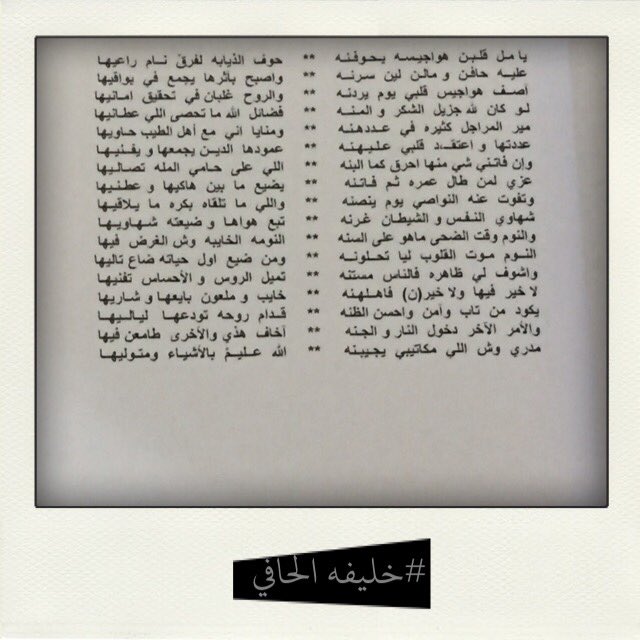 يا مـل قلبـن هواجيسـه يحـوفنـه ** حوف الذيابه لفرق نـام راعيها
عليـه حافـن و مالـن لين سرنـه ** واصبح بأثرها يجمع في بواقيها
أصـف هواجيس قلبي يوم يردنه ** والروح غلبان في تحقيق امـانيها
لـو كان لله جزيل الشكر و المنـه ** فضائل الله ما تحصى اللي عطـانيها
مير المراجل كثيره في عـددهنه ** ومنايا اني مع أهل الطيب حاويها
عددتها و أعتقـد قلبي عليـهنه ** عمودها الديـن يجمعها و يفنـيها
وإن فاتنـي شي منها احرق كما البنه ** اللي على حامي المله تصـاليها
عزي لمن طال عمره ثـم فـاتنه ** يضيع ما بين هاكيها و عطـنيها
وتفوت عنه النواصي يوم ينصنه ** واللي ما تلقاه بكره ما يـلاقيها
شهاوي النـفس و الشيطان غرنه ** تبع هواهـا و ضيعته شهـاويـها
والنوم وقت الضحى ماهو على السنه ** النومه الخايبه وش الغرض فيها
النـوم مـوت القلوب ليا تحلـونـه ** ومن ضيع اول حياته ضاع تاليها
واشوف لي ظاهره فالناس مستنه ** تميل الروس و الأحساس تفنيها
لا خير فيها ولا خير(ن) فأهـلهنه ** خايب و ملعون بايعها و شاريها
يكود من تاب وآمن واحسن الظنه ** قـدام روحه تودعـها ليالـيها
والأمر الآخر دخول النار و الجنه ** أخاف هذي والأخرى طامعن فيها
مدري وش اللي مكاتيبي يجيبنه ** الله عـليـم بالأشياء ومتوليـها
#خليفه الحافي